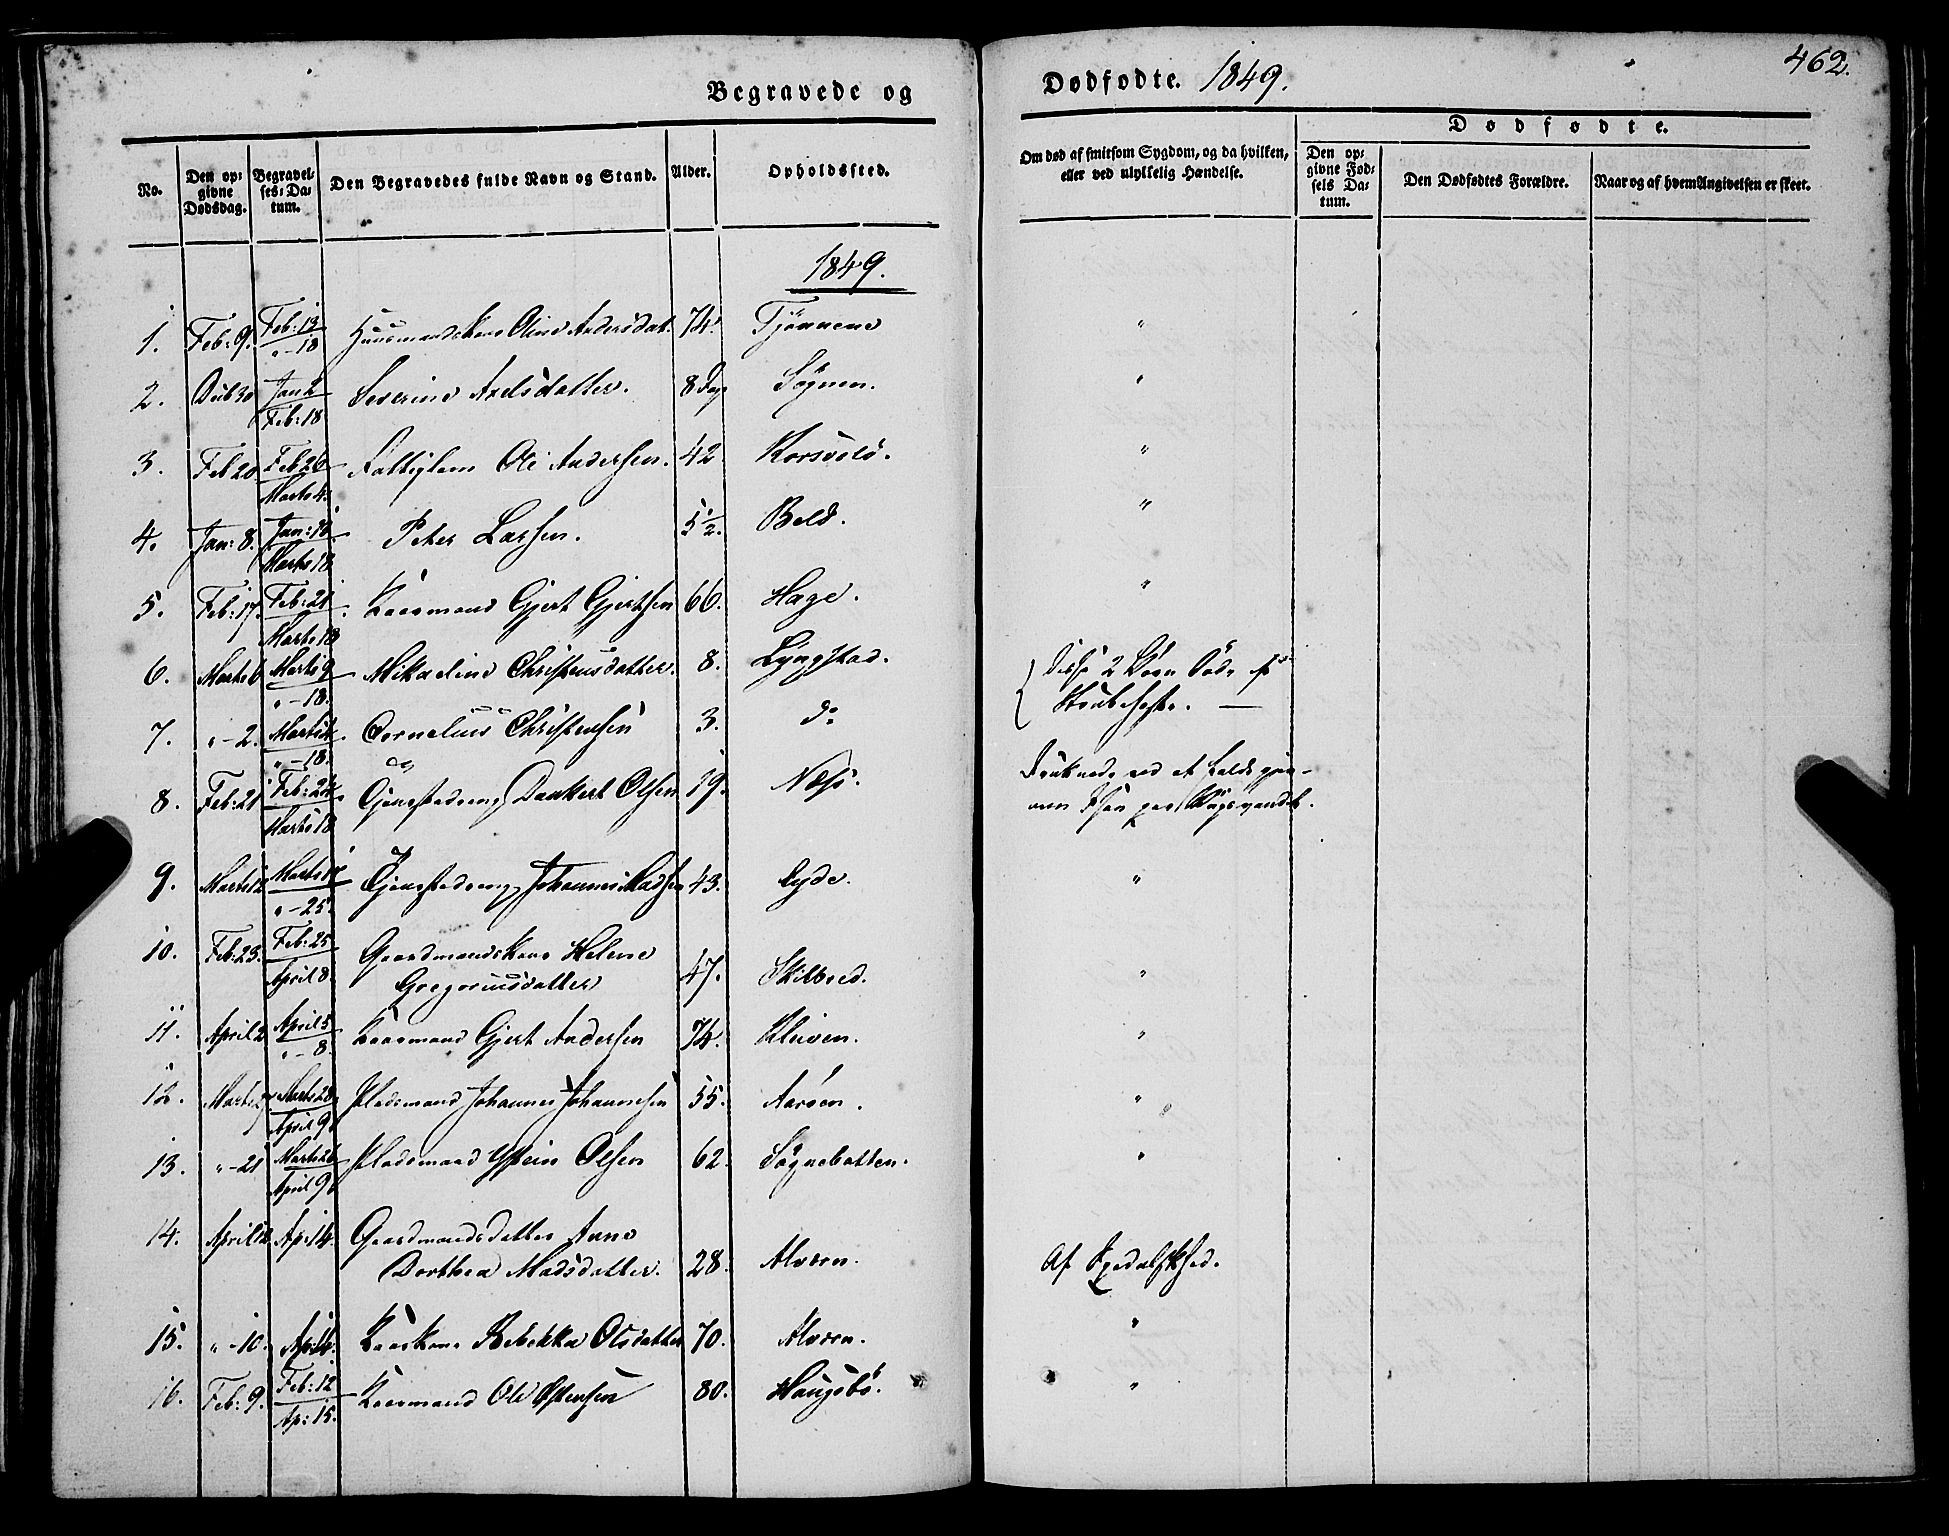 462.
Begravede og Dødfødte. 1849.
No.
Den opgivne Dødsdag.
Begravelses-Datum.
Den Begravedes fulde Navn og Stand.
Alder.
Opholdssted.
Om død af smitsom Sygdom, og da hvilken, eller ved ulykkelig Hændelse.
Dødfødte.
Den opgivne Fødsels Datum.
Den Dødfødtes Forældre.
Naar og af hvem Angivelsen er skeet.
1849.
1. Feb: 9. Feb: 13 " - 18 Huusmandskone Oline Andersdat. 74. Tjønnene "
2. Dec 30 Jan 2 Feb: 18 Severine Axelsdatter. 8 Dag Søgnen. "
3. Feb 20. Feb 26 Marts 4. Fattiglem Ole Andersen. 42. "
4. Jan: 8. Marts 18 Peter Larsen. 5 1/2. "
5. Feb: 17. Feb: 21. Marts 18 Kaarmand Gjert Gjertsen 66. Hage. "
6. Marts 6 Marts 9 " - 18. Mikaeline Christensdatter. 8. Lyngstad. Disse 2 Børn døde af
7. " - 2. " - 18. Cornelius Christensen 3. do Strubehoste. —
8. Feb: 21 Marts 18 Tjenestedreng Dankert Olsen 19. Næss. Druknede ved at falde gjennem Isen paa
9. Marts 12 " - 25. Tjenestedreng Johannes Madsen 43. "
10. Feb: 23. Feb: 25 April 8. Gaardmandskone Helene
Gregoriusdatter 47. Skilbred. "
11. April 2 April 5 " - 8. Kaarmand Gjert Andersen 74. Kleiven. "
12. Marts 28 April 9 Pladsmand Johannes Johannesen 55. Aarøen. "
13. " - 21 Marts 26 April 9 Pladsmand Olsen 62. Søgnebotten. "
14. April 12 Ap: 14. Gaardmandsdatter Anne
Dorthea Madsdatter. 28. Alvøen. Af Spedalskhed.
15. " - 10. Ap: 14. Kaarkone Rebekka Olsdatter 70. Alvøen. "
16. Feb: 9. Feb: 12 Ap: 15. Kaarmand Ole 80. Haugsbø. "